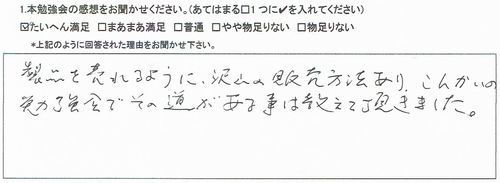 1.本勉強会の感想をお聞かせください。(あてはまる□1つに✔を入れてください)
☑たいへん満足 □まあまあ満足 □普通 □やや物足りない □物足りない
*上記のように回答された理由をお聞かせ下さい。
製品を売れるように、沢山の販売方法あり、こんかいの
勉強会でその道がある事は教えて頂きました。